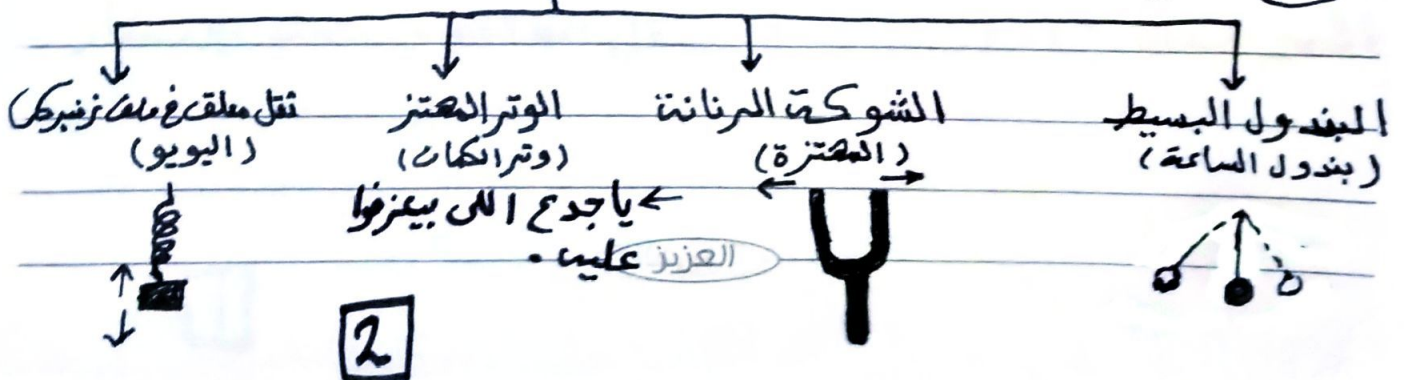 البندول البسيط
(بندول الساعة)
الشوكة الرنانة
(المهتزة)
الوتر المهتز
(وتر الكمان)
← يا جدع اللى بيعزفوا
عليه.
ثقل معلق في ملف زنبركى
(اليويو)
العزيز
2